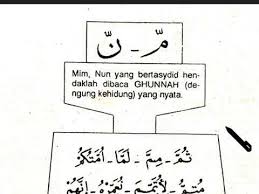 مّ - نّ
Mim, Nun yang bertasydid hen-
daklah dibaca GHUNNAH (de-
ngung kehidung) yang nyata.
ثُمَّ - مِمَّ - لَمَّا - أُمَّتُكُمْ
مُتِمُّ - لِأُتِمَّ - نُعَمِّرْهُ - إِنَّهُمْ